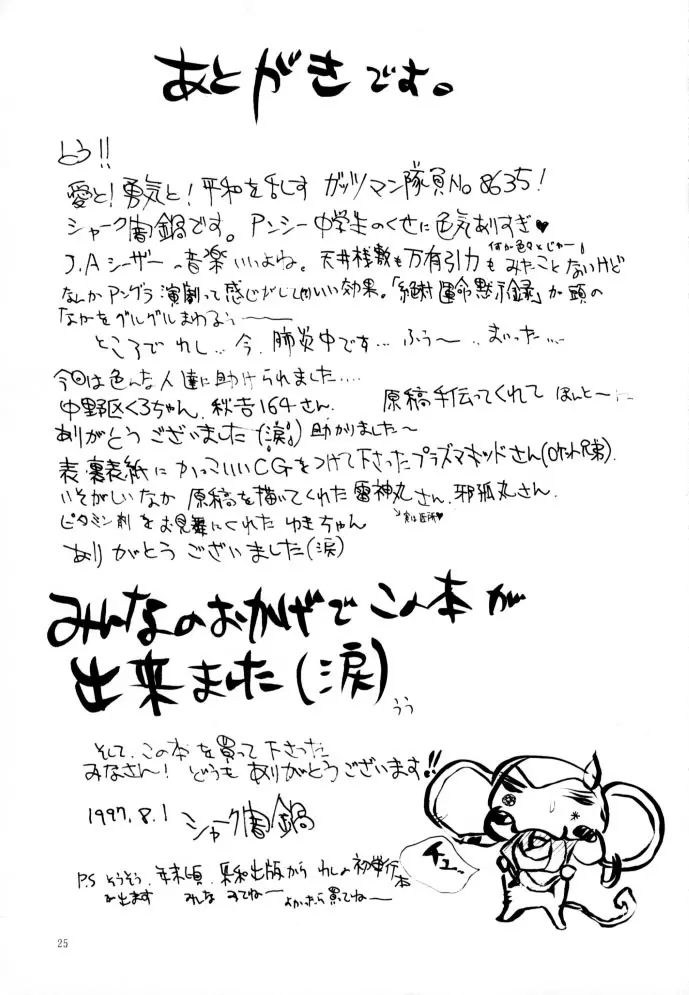 あとがきです。
とう!!
愛と!勇気と!平和を乱す ガッツマン隊員No 8635!
シャーク闇鍋です。アンシー中学生のくせに色気ありすぎ♥
J.Aシーザーの音楽いいよね。天井桟敷も万有引力もみたことないけど
なんかアングラ演劇って感じがしていい効果。「絶対運命黙示録」が頭の
なかをグルグルまわるぅー
ところでわし…今、肺炎中です… ふぅ〜…まいった…
今回は色んな人達に助けられました…
中野区くろちゃん、秋吉164さん、 原稿手伝ってくれて ほんと〜
ありがとうございました(涙)助かりました〜
表・裏表紙にかっこいいCGをつけて下さったプラズマキッドさん(ロケット兄弟)、
いそがしいなか 原稿を描いてくれた 雷神丸さん、邪狐丸さん、
ビタミン剤をお見舞にくれた ゆきちゃん
ありがとうございました(涙)
みんなのおかげでこの本が
出来ました(涙)
うぅ
そして、この本を買って下さった
みなさん! どうもありがとうございます!!
1997.8.1 シャーク闇鍋
チュー
P.S そうそう、年末頃、東和出版から わしの初単行本
が出ます みんな みてねー よかったら買てねー
25